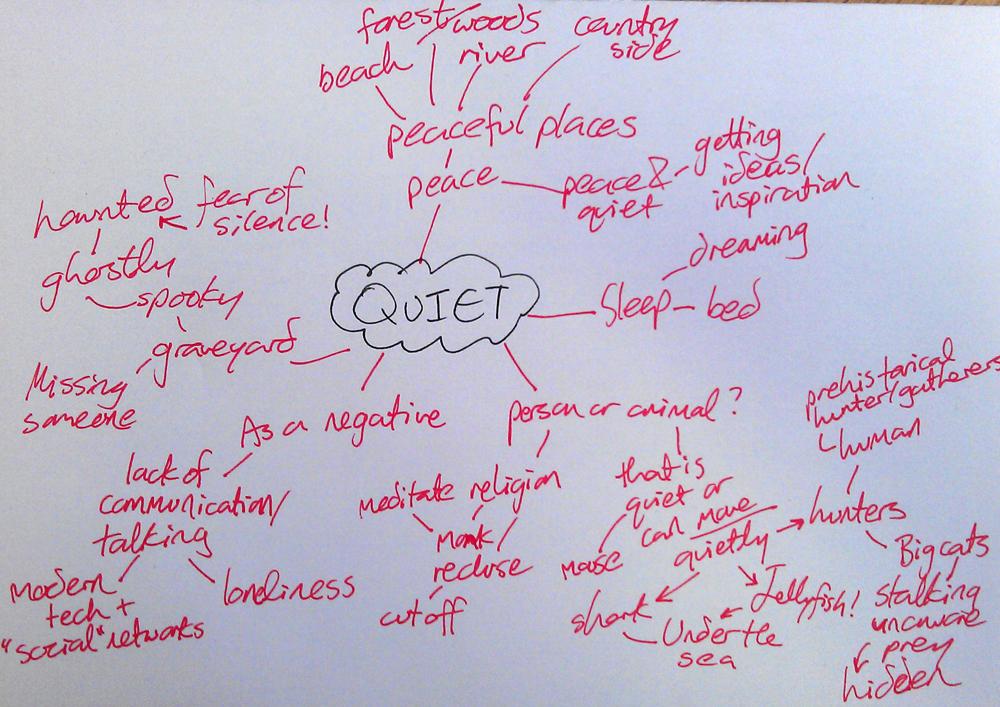 forest/woods
country
side
beach
river
peaceful places
peace
peace &
quiet
getting
ideas/
inspiration
haunted
fear of
silence!
ghostly
spooky
graveyard
Missing
someone
QUIET
dreaming
Sleep - bed
As a negative
lack of
communication/
talking
modern
tech +
"social" networks
loneliness
person or animal?
meditate
religion
monk/
recluse
cut off
that is
quiet or
can move
quietly
mouse
shark
Jellyfish!
Under the
sea
prehistorical
hunter/gatherers
human
hunters
Big cats
stalking
unaware
prey
hidden